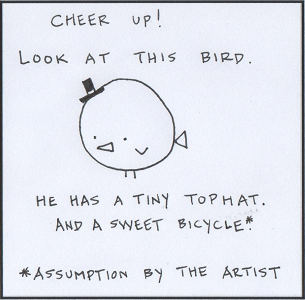 CHEER UP!
LOOK AT THIS BIRD.
HE HAS A TINY TOPHAT.
AND A SWEET BICYCLE.*
*ASSUMPTION BY THE ARTIST